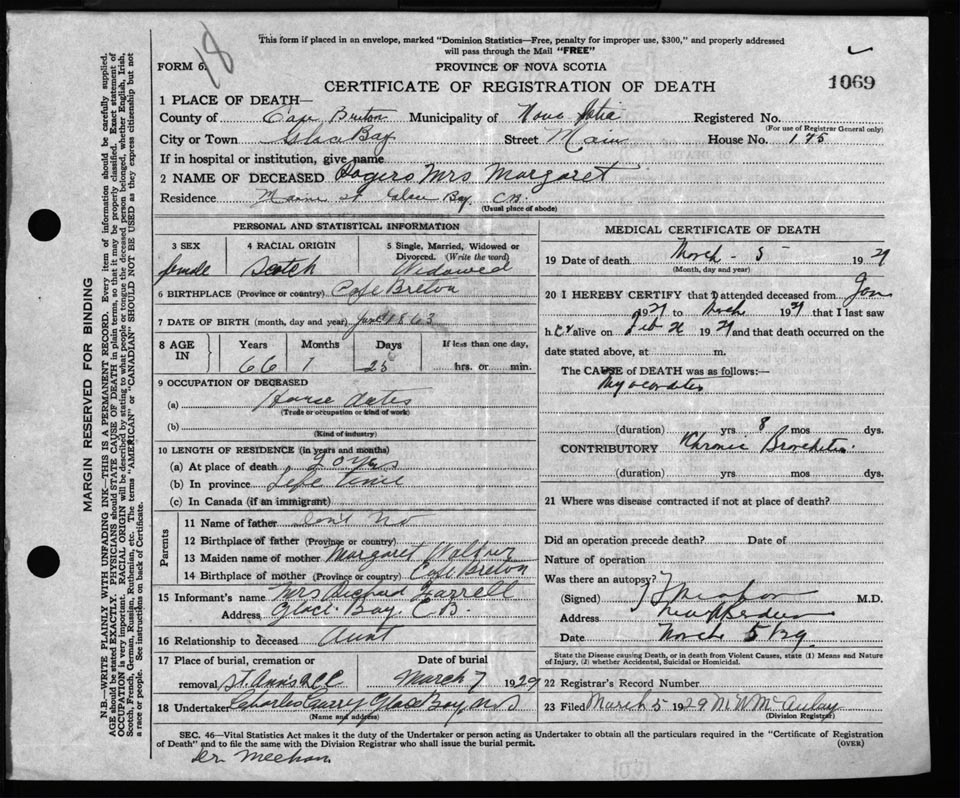 18
This form if placed in an envelope, marked "Dominion Statistics—Free, penalty for improper use, $300," and properly addressed
will pass through the Mail "FREE"
FORM 6.
PROVINCE OF NOVA SCOTIA
1069
CERTIFICATE OF REGISTRATION OF DEATH
1 PLACE OF DEATH—
County of Cape Breton Municipality of Nova Scotia Registered No.
(For use of Registrar General only)
City or Town Glace Bay Street Main House No. 175
If in hospital or institution, give name
2 NAME OF DECEASED Rogers Mrs Margaret
Residence Main St Glace Bay, C.B.
(Usual place of abode)
PERSONAL AND STATISTICAL INFORMATION
3 SEX 4 RACIAL ORIGIN 5 Single, Married, Widowed or Divorced. (Write the word)
female Scotch Widowed
6 BIRTHPLACE (Province or country) Cape Breton
7 DATE OF BIRTH (month, day and year) 1863
8 AGE IN Years Months Days If less than one day,
66 1 25 hrs. or min.
9 OCCUPATION OF DECEASED
(a) House Duties
(Trade or occupation or kind of work)
(b)
(Kind of industry)
10 LENGTH OF RESIDENCE (in years and months)
(a) At place of death
(b) In province Life time
(c) In Canada (if an immigrant)
Parents
11 Name of father Don't No
12 Birthplace of father (Province or country)
13 Maiden name of mother Margaret
14 Birthplace of mother (Province or country) Cape Breton
15 Informant's name Mrs Richard Farrell
Address Glace Bay. C B.
16 Relationship to deceased Aunt
17 Place of burial, cremation or removal Date of burial
St. Ann's March 7 1929
18 Undertaker Charles Curry Glace Bay, N S
(Name and address)
MEDICAL CERTIFICATE OF DEATH
19 Date of death March - 5 - 1929
(Month, day and year)
20 I HEREBY CERTIFY that I attended deceased from Jan
1929 to March 1929 that I last saw
her alive on Feb 1929 and that death occurred on
date stated above, at m.
The CAUSE of DEATH was as follows:—
Myocarditis
(duration) yrs 8 mos dys.
CONTRIBUTORY Chronic Bronchitis
(duration) yrs. mos. dys.
21 Where was disease contracted if not at place of death?
Did an operation precede death? Date of
Nature of operation
Was there an autopsy?
(Signed) Meehan M.D.
Address New Aberdeen
Date March 5/29
State the Disease causing Death, or in death from Violent Causes, state (1) Means and Nature
of Injury, (2) whether Accidental, Suicidal or Homicidal.
22 Registrar's Record Number
23 Filed March 5 1929 M McAulay
(Division Registrar)
SEC. 46—Vital Statistics Act makes it the duty of the Undertaker or person acting as Undertaker to obtain all the particulars required in the "Certificate of Registration
of Death" and to file the same with the Division Registrar who shall issue the burial permit.
(OVER)
Dr Meehan
MARGIN RESERVED FOR BINDING
N.B.—WRITE PLAINLY WITH UNFADING INK—THIS IS A PERMANENT RECORD. Every item of information should be carefully supplied.
AGE should be stated EXACTLY. PHYSICIANS should STATE CAUSE OF DEATH in plain terms, so that it may be properly classified. Exact statement of
OCCUPATION is very important. RACIAL ORIGIN will be described by stating to what people or tongue the deceased person belonged, whether English, Irish,
Scotch, French, German, Russian, Ruthenian, etc. The terms "AMERICAN" or "CANADIAN" SHOULD NOT BE USED as they express citizenship but not
a race or people. See instructions on back of Certificate.